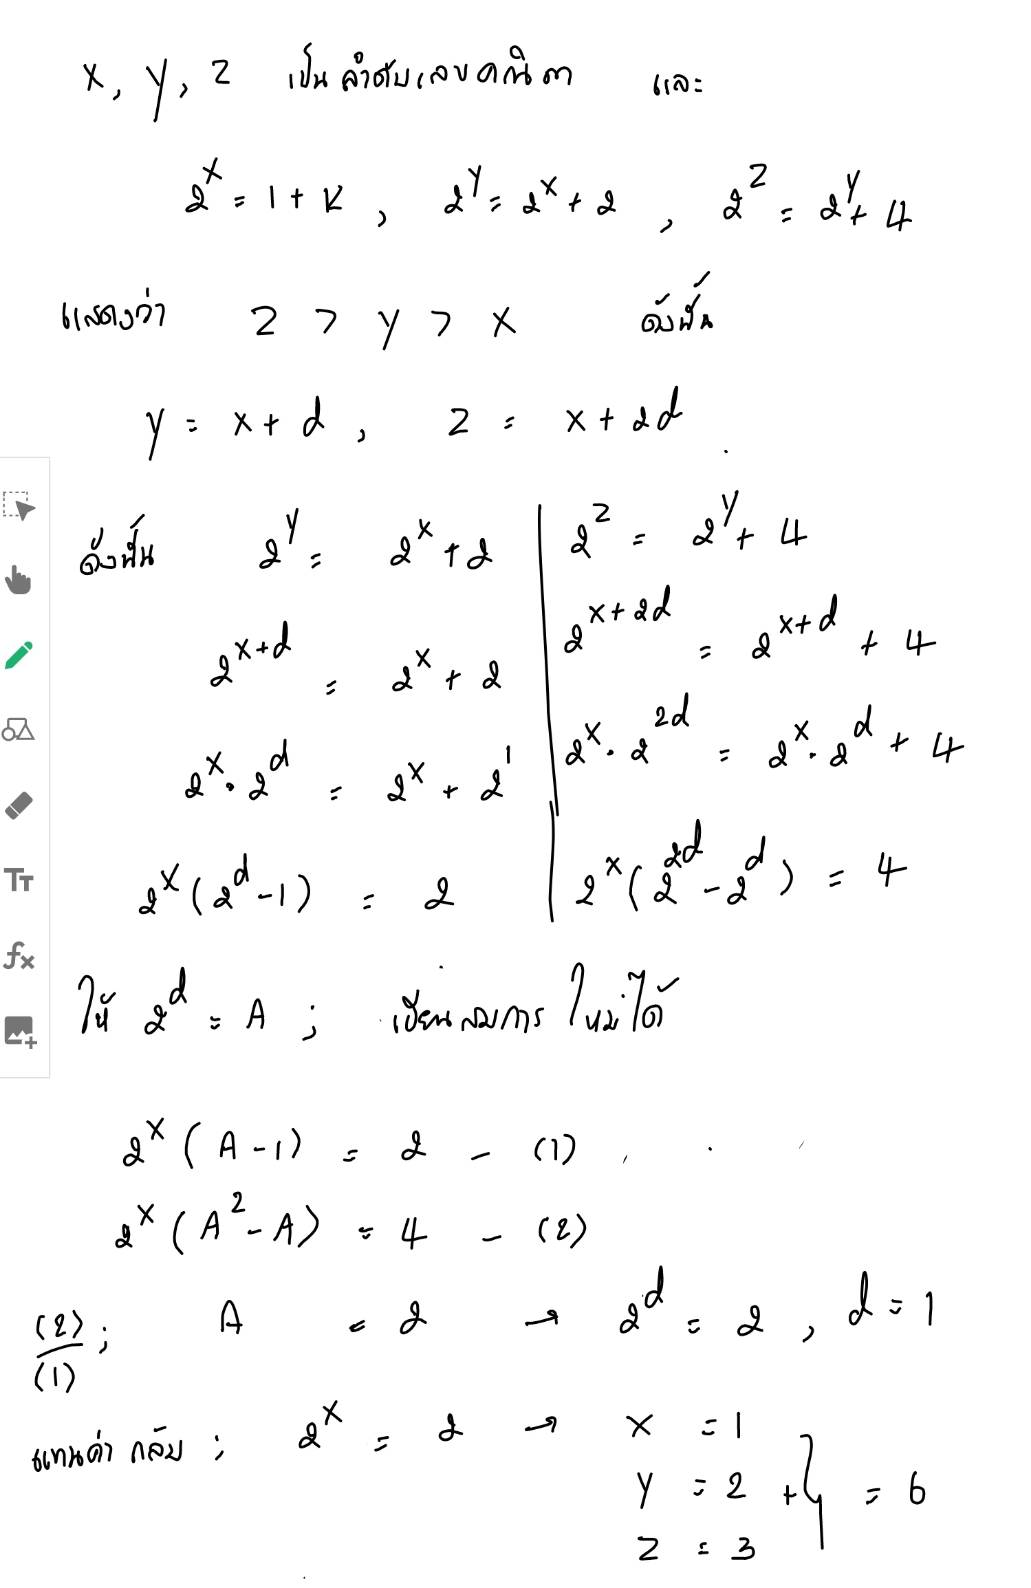 x, y, z เป็นลำดับเลขคณิต และ
2^x = 1 + k , 2^y = 2^x + 2 , 2^z = 2^y + 4
แสดงว่า z > y > x ดังนั้น
y = x + d , z = x + 2d
ดังนั้น 2^y = 2^x + 2 | 2^z = 2^y + 4
2^(x+d) = 2^x + 2 | 2^(x+2d) = 2^(x+d) + 4
2^x · 2^d = 2^x + 2^1 | 2^x · 2^(2d) = 2^x · 2^d + 4
2^x (2^d - 1) = 2 | 2^x (2^(2d) - 2^d) = 4
ให้ 2^d = A ; เขียนสมการใหม่ได้
2^x (A - 1) = 2 - (1)
2^x (A^2 - A) = 4 - (2)
(2)/(1) ; A = 2 → 2^d = 2 , d = 1
แทนค่ากลับ ; 2^x = 2 → x = 1
y = 2 + } = 6
z = 3
TT
fx